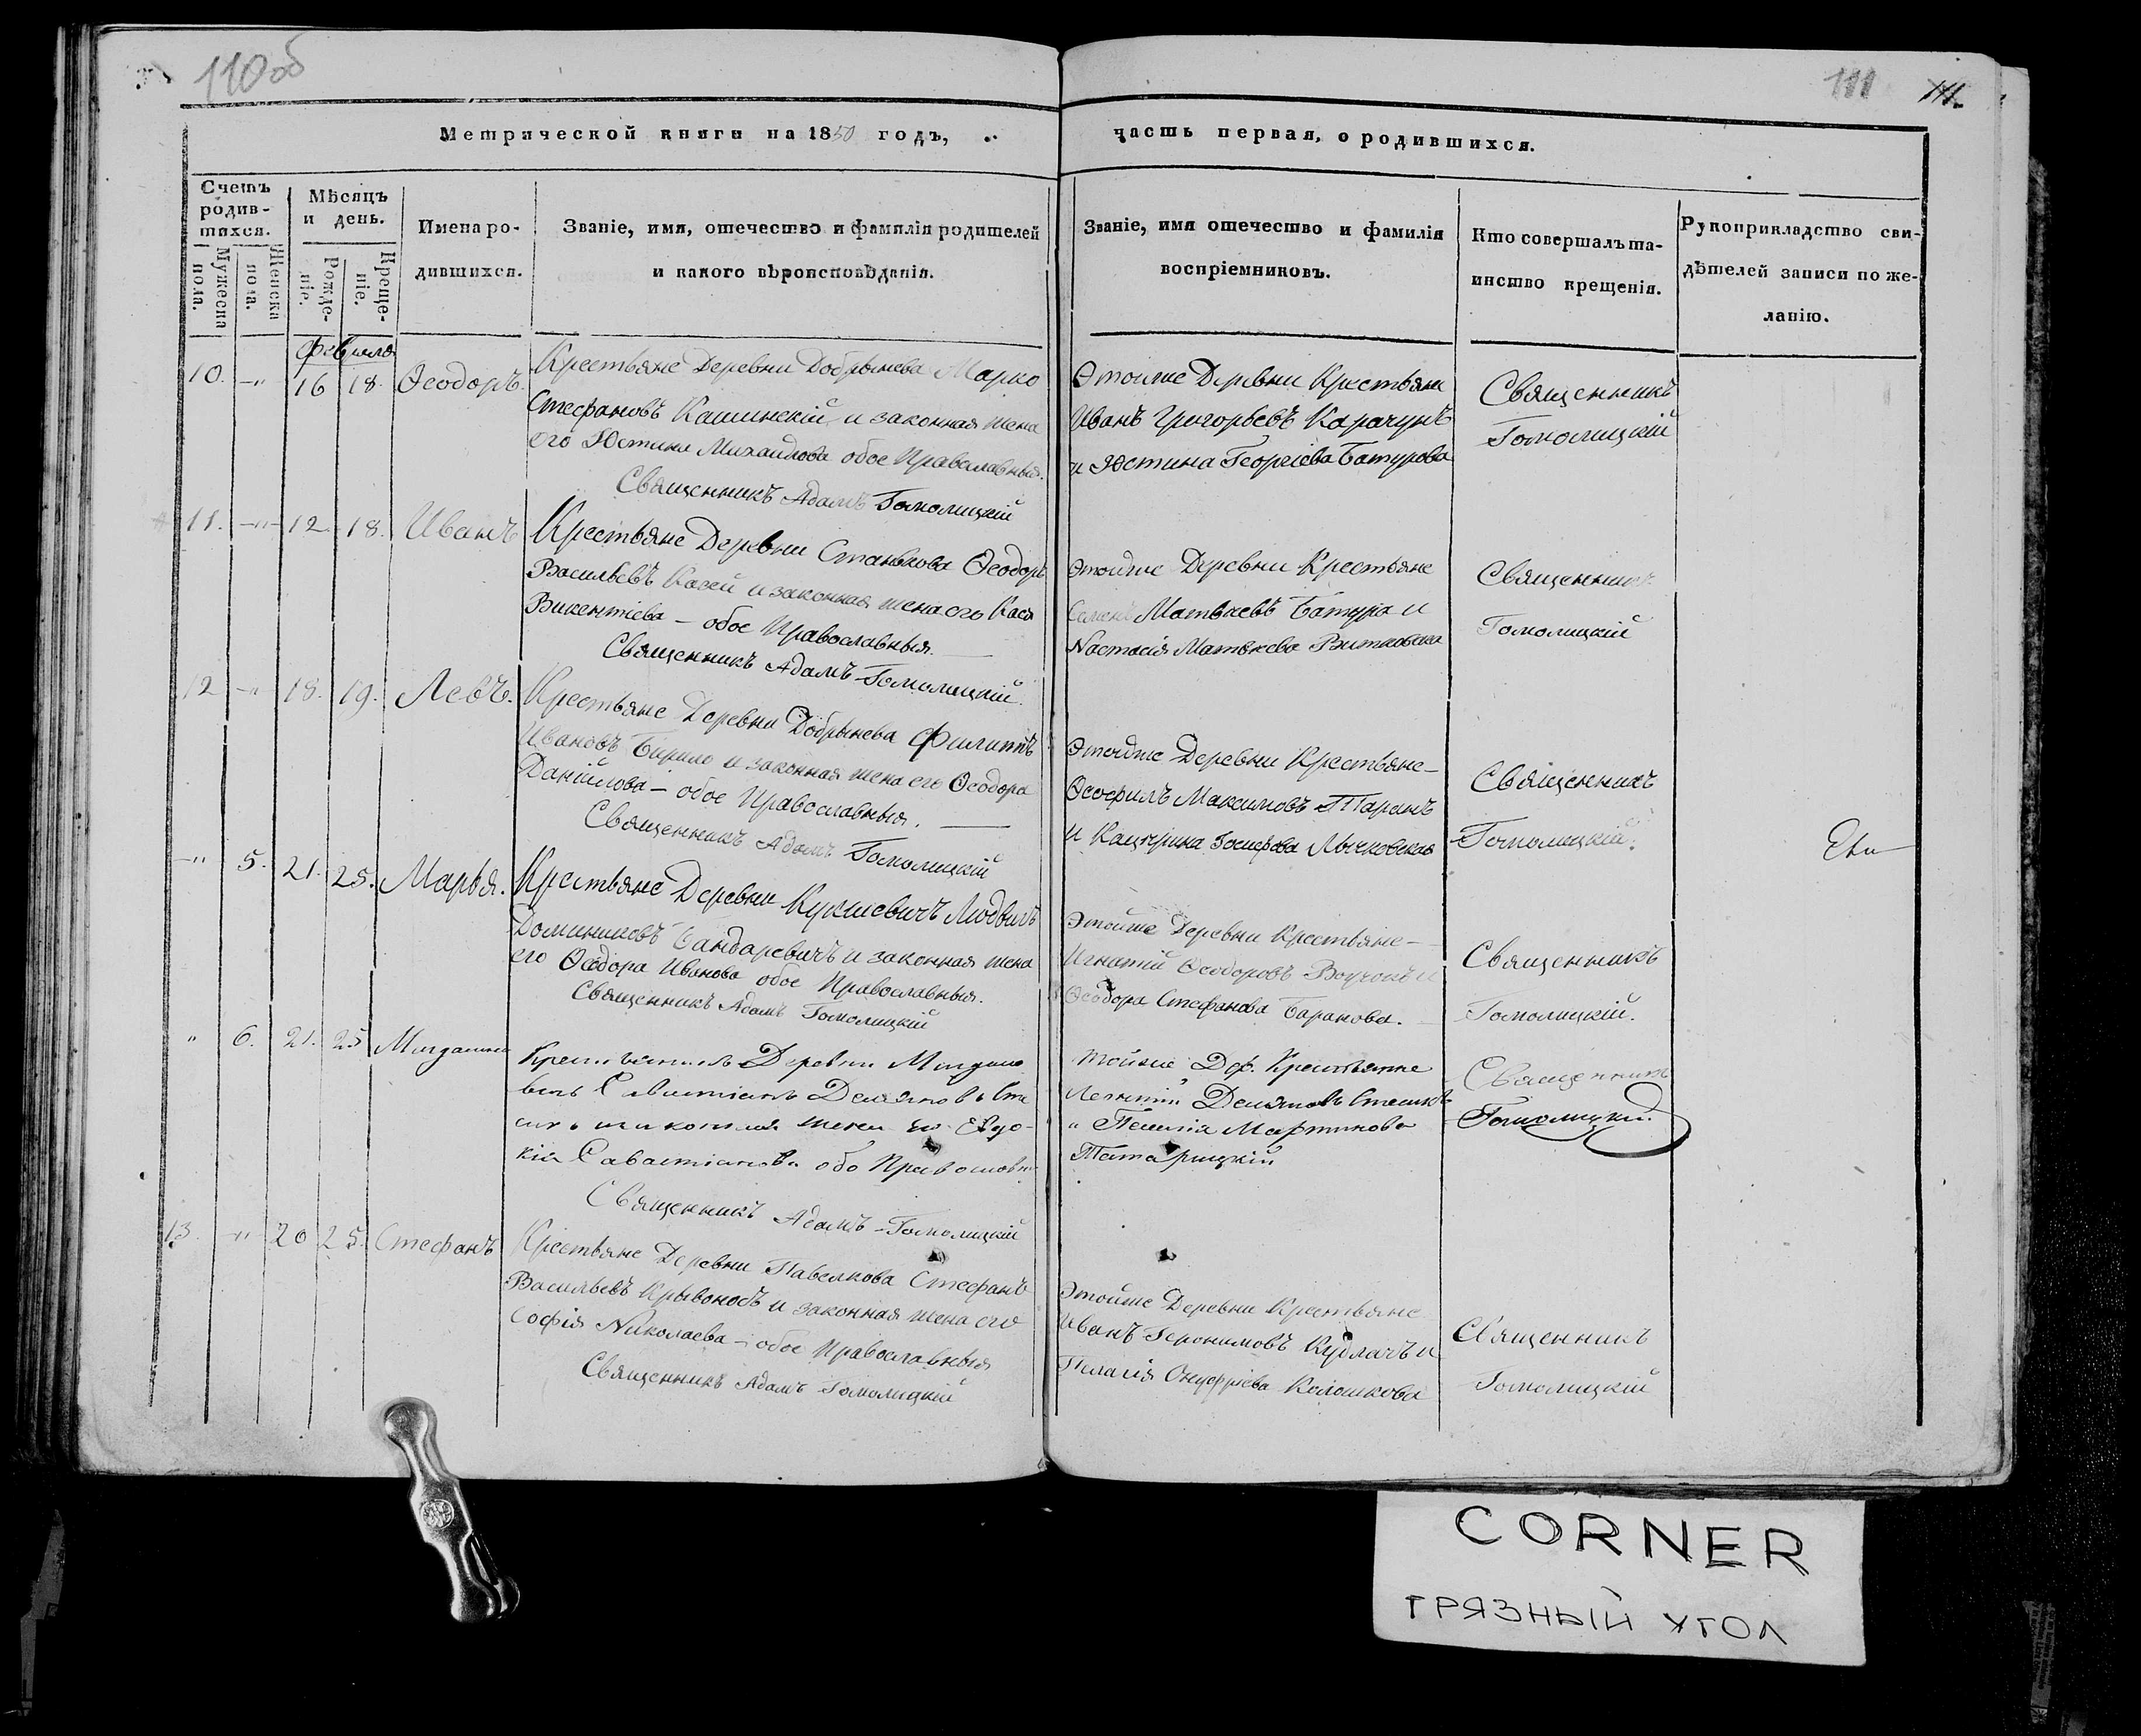 110об
111 111.
Метрической книги на 1850 годъ,
часть первая, о родившихся.
Счетъ родив-шихся.
Мужеска пола.
Женска пола.
Мѣсяцъ и день.
Рожде-ніе.
Креще-ніе.
Имена ро-
дившихся.
Званіе, имя, отечество и фамилія родителей
и какого вѣроисповѣданія.
Званіе, имя отечество и фамилія
воспріемниковъ.
Кто совершалъ та-
инство крещенія.
Рукоприкладство сви-
дѣтелей записи по же-
ланію.
Февраля
10. -"- 16 18. Ѳеодоръ.
Крестьяне Деревни Добрынева Марко
Стефановъ Кашинскій и законная жена
его Юстина Михаилова обое Православныя.
Священникъ Адамъ Гомолицкій
Этойже Деревни Крестьяне
Иванъ Григорьевъ Карачунъ
и Юстина Георгіева Батурова
Священникъ
Гомолицкій
11. -"- 12 18. Иванъ
Крестьяне Деревни Станькова Ѳеодоръ
Васильевъ Казей и законная жена его Кася
Викентіева - обое Православныя.
Священникъ Адамъ Гомолицкій.
Этойже Деревни Крестьяне
Семенъ Матвѣевъ Батура и
Настасія Матвѣева Витковска
Священникъ
Гомолицкій
12 -"- 18. 19. Левъ.
Крестьяне Деревни Добрынева Филиппъ
Ивановъ Бирило и законная жена его Ѳеодора
Даніилова - обое Православныя.
Священникъ Адамъ Гомолицкій
Этойже Деревни Крестьяне
Ѳеофилъ Максимовъ Таранъ
и Кацярина Іосифова Лычковская
Священникъ
Гомолицкій.
" 5. 21. 25. Марья.
Крестьяне Деревни Кукшевичъ Людвикъ
Доминиковъ Бандаревичъ и законная жена
его Ѳеодора Иванова обое Православныя.
Священникъ Адамъ Гомолицкій
Этойже Деревни Крестьяне
Игнатій Ѳеодоровъ и
Ѳеодора Стефанова Баранова.
Священникъ
Гомолицкій.
" 6. 21. 25 Магдалина
Деревни
Демяновъ
жена его Евдо-
кія Савастіанова обо Православн
Священникъ Адамъ Гомолицкій
Тойже Дер. Крестьяне
Демяновъ
Мартинова
Священникъ
Гомолицкій.
13. -"- 20 25. Стефанъ
Крестьяне Деревни Павелкова Стефанъ
Васильевъ Крывоносъ и законная жена его
Софія Николаева - обое Православныя
Священникъ Адамъ Гомолицкій
Этойже Деревни Крестьяне
Иванъ Геронимовъ Кудлачъ и
Пелагія Онуфріева Колошкова
Священникъ
Гомолицкій
CORNER
ГРЯЗНЫЙ УГОЛ